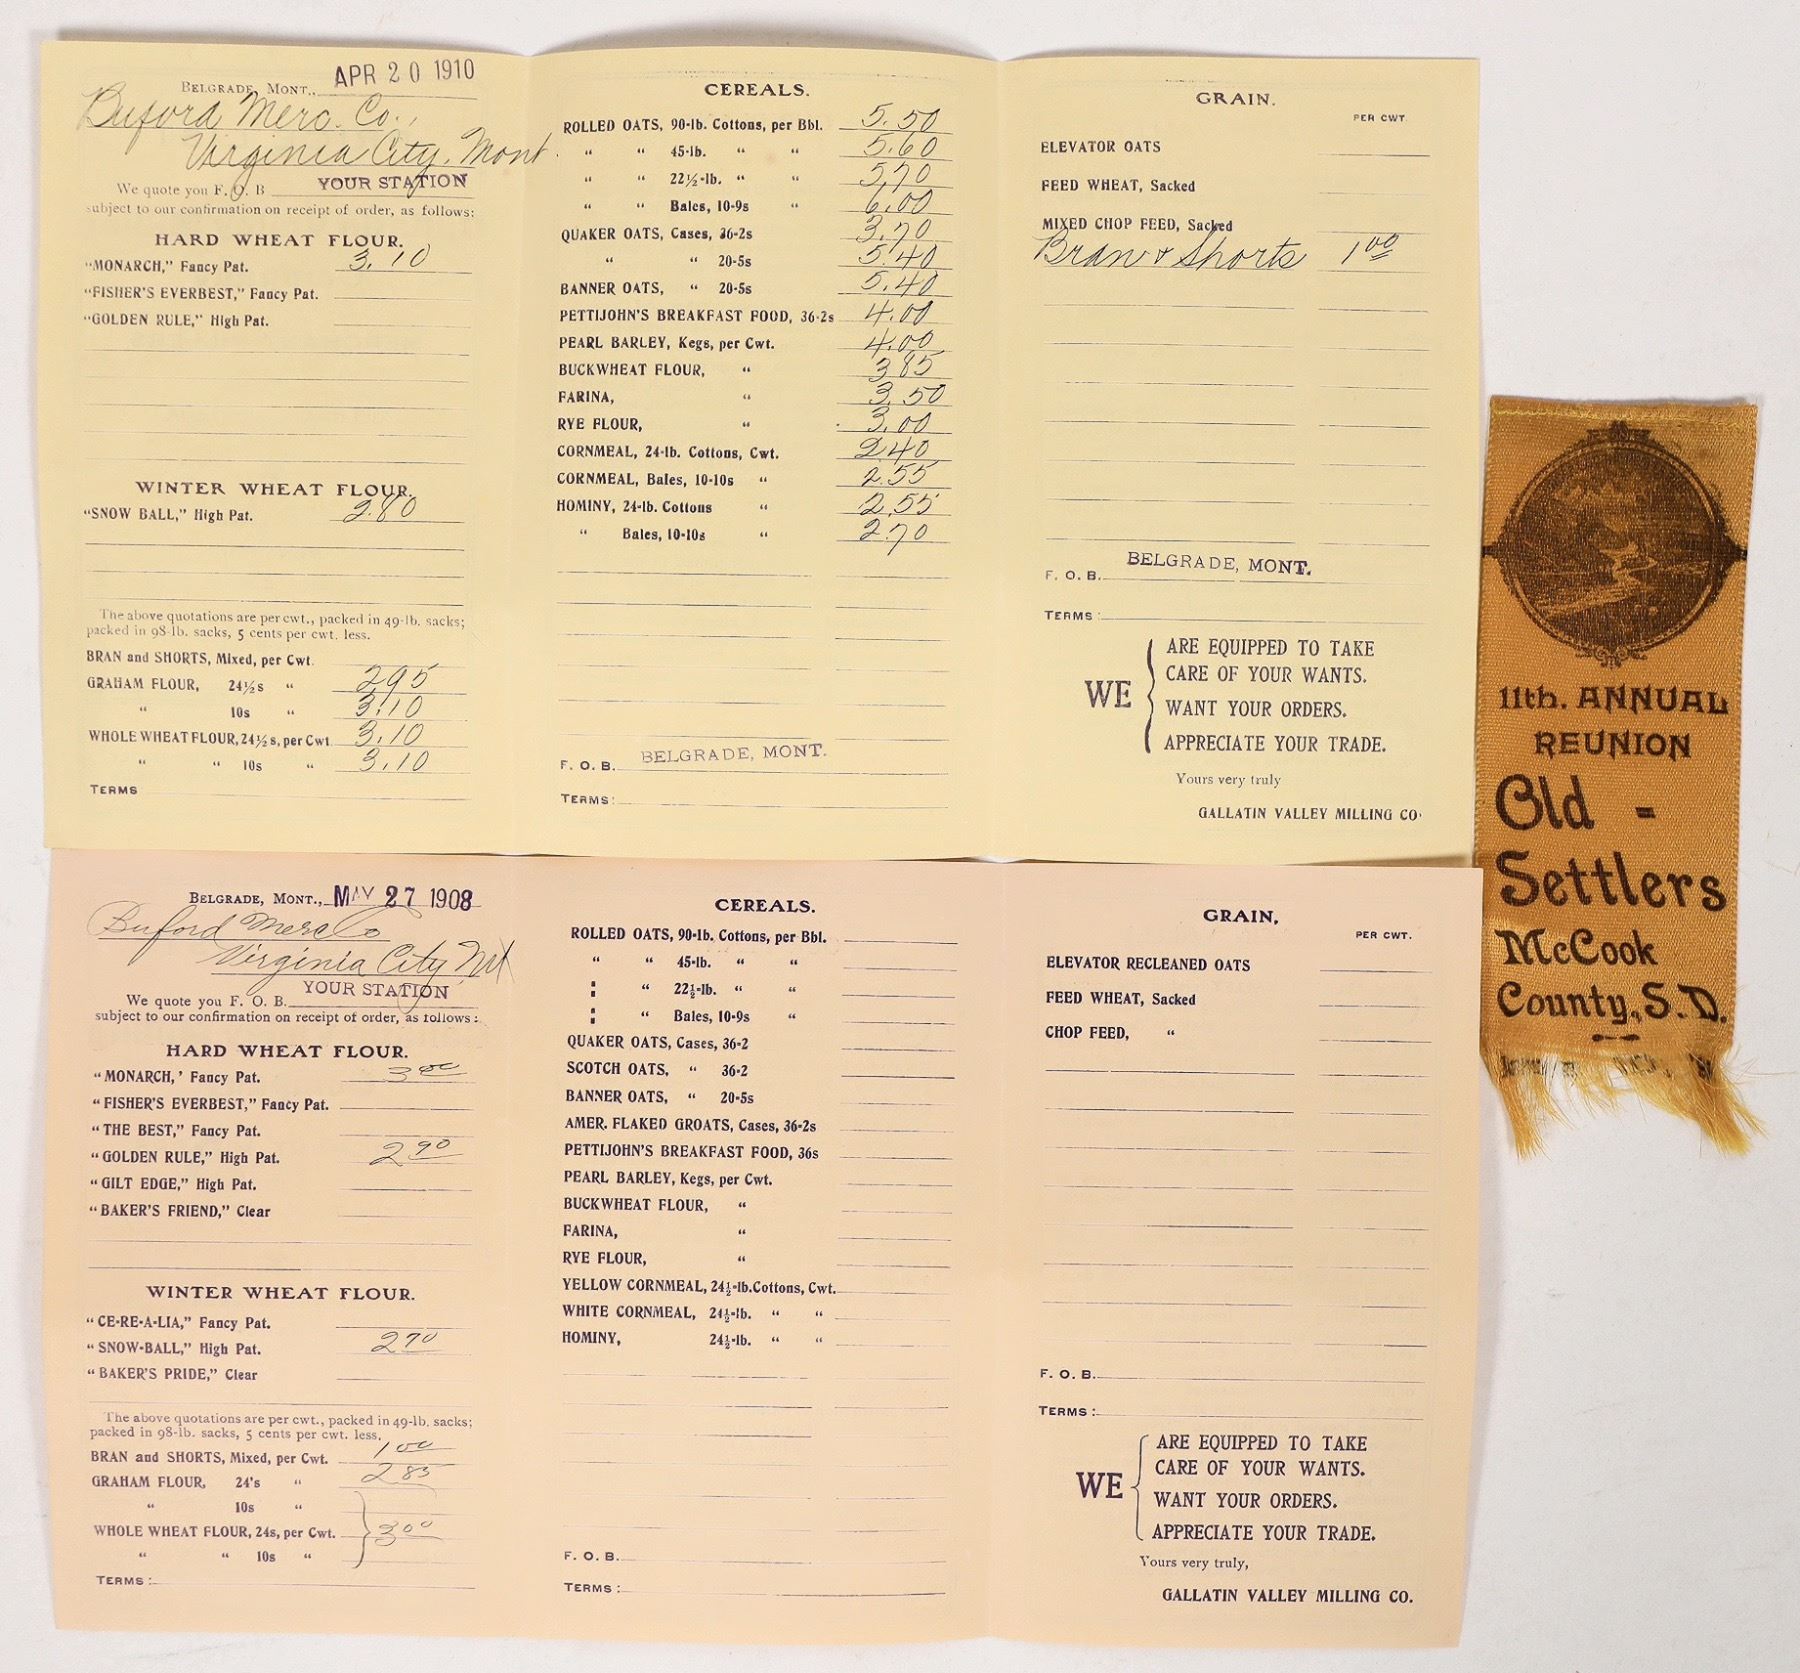 BELGRADE, MONT., APR 20 1910
Buford Merc. Co.,
Virginia City, Mont
We quote you F. O. B YOUR STATION
subject to our confirmation on receipt of order, as follows:
HARD WHEAT FLOUR.
"MONARCH," Fancy Pat. 3.10
"FISHER'S EVERBEST," Fancy Pat.
"GOLDEN RULE," High Pat.
WINTER WHEAT FLOUR.
"SNOW BALL," High Pat. 2.80
The above quotations are per cwt., packed in 49-lb. sacks;
packed in 98-lb. sacks, 5 cents per cwt. less.
BRAN and SHORTS, Mixed, per Cwt.
GRAHAM FLOUR, 24½s " 2.95
" 10s " 3.10
WHOLE WHEAT FLOUR, 24½s, per Cwt 3.10
" " 10s " 3.10
TERMS
CEREALS.
ROLLED OATS, 90-lb. Cottons, per Bbl. 5.50
" " 45-lb. " " 5.60
" " 22½-lb. " " 5.70
" " Bales, 10-9s " 6.00
QUAKER OATS, Cases, 36-2s 3.70
" " 20-5s 5.40
BANNER OATS, " 20-5s 5.40
PETTIJOHN'S BREAKFAST FOOD, 36-2s 4.00
PEARL BARLEY, Kegs, per Cwt. 4.00
BUCKWHEAT FLOUR, " 3 85
FARINA, " 3.50
RYE FLOUR, " 3.00
CORNMEAL, 24-lb. Cottons, Cwt. 2.40
CORNMEAL, Bales, 10-10s " 2.55
HOMINY, 24-lb. Cottons " 2.55
" Bales, 10-10s " 2.70
F. O. B. BELGRADE, MONT.
TERMS:
GRAIN.
PER CWT.
ELEVATOR OATS
FEED WHEAT, Sacked
MIXED CHOP FEED, Sacked
Bran & Shorts 1 00
F. O. B. BELGRADE, MONT.
TERMS:
WE
ARE EQUIPPED TO TAKE
CARE OF YOUR WANTS.
WANT YOUR ORDERS.
APPRECIATE YOUR TRADE.
Yours very truly
GALLATIN VALLEY MILLING CO.
BELGRADE, MONT., MAY 27 1908
Buford Merc Co
Virginia City, Mt
We quote you F. O. B. YOUR STATION
subject to our confirmation on receipt of order, as follows:
HARD WHEAT FLOUR.
"MONARCH,' Fancy Pat. 3 00
"FISHER'S EVERBEST," Fancy Pat.
"THE BEST," Fancy Pat.
"GOLDEN RULE," High Pat. 2 90
"GILT EDGE," High Pat.
"BAKER'S FRIEND," Clear
WINTER WHEAT FLOUR.
"CE-RE-A-LIA," Fancy Pat.
"SNOW-BALL," High Pat. 2 70
"BAKER'S PRIDE," Clear
The above quotations are per cwt., packed in 49-lb. sacks;
packed in 98-lb. sacks, 5 cents per cwt. less.
BRAN and SHORTS, Mixed, per Cwt. 1 00
GRAHAM FLOUR, 24's " 2 85
" 10s "
WHOLE WHEAT FLOUR, 24s, per Cwt. 3 00
" " 10s "
TERMS:
CEREALS.
ROLLED OATS, 90-lb. Cottons, per Bbl.
" " 45-lb. " "
" " 22½-lb. " "
" " Bales, 10-9s "
QUAKER OATS, Cases, 36-2
SCOTCH OATS, " 36-2
BANNER OATS, " 20-5s
AMER. FLAKED GROATS, Cases, 36-2s
PETTIJOHN'S BREAKFAST FOOD, 36s
PEARL BARLEY, Kegs, per Cwt.
BUCKWHEAT FLOUR, "
FARINA, "
RYE FLOUR, "
YELLOW CORNMEAL, 24½-lb. Cottons, Cwt.
WHITE CORNMEAL, 24½-lb. " "
HOMINY, 24½-lb. " "
F. O. B.
TERMS:
GRAIN.
PER CWT.
ELEVATOR RECLEANED OATS
FEED WHEAT, Sacked
CHOP FEED, "
F. O. B.
TERMS:
WE
ARE EQUIPPED TO TAKE
CARE OF YOUR WANTS.
WANT YOUR ORDERS.
APPRECIATE YOUR TRADE.
Yours very truly,
GALLATIN VALLEY MILLING CO.
11th. ANNUAL
REUNION
Old =
Settlers
McCook
County, S. D.